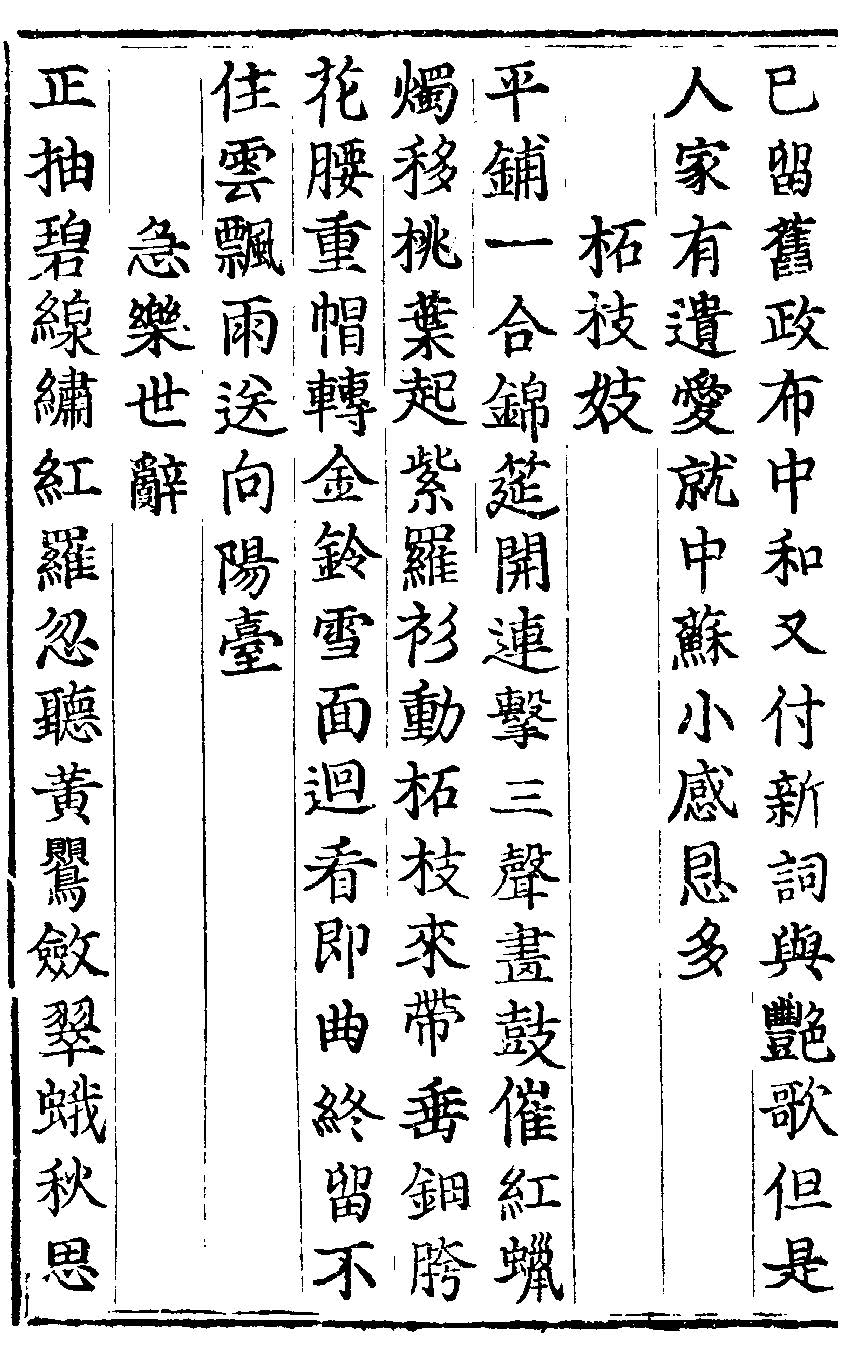 已留舊政布中和又付新詞與艷歌但是
人家有遺愛就中蘇小感恩多
柘枝妓
平鋪一合錦筵開連擊三聲畫鼓催紅蠟
燭移桃葉起紫羅衫動柘枝來帶垂鈿胯
花腰重帽轉金鈴雪面迴看即曲終留不
住雲飄雨送向陽臺
急樂世辭
正抽碧線繡紅羅忽聽黃鸎斂翠蛾秋思